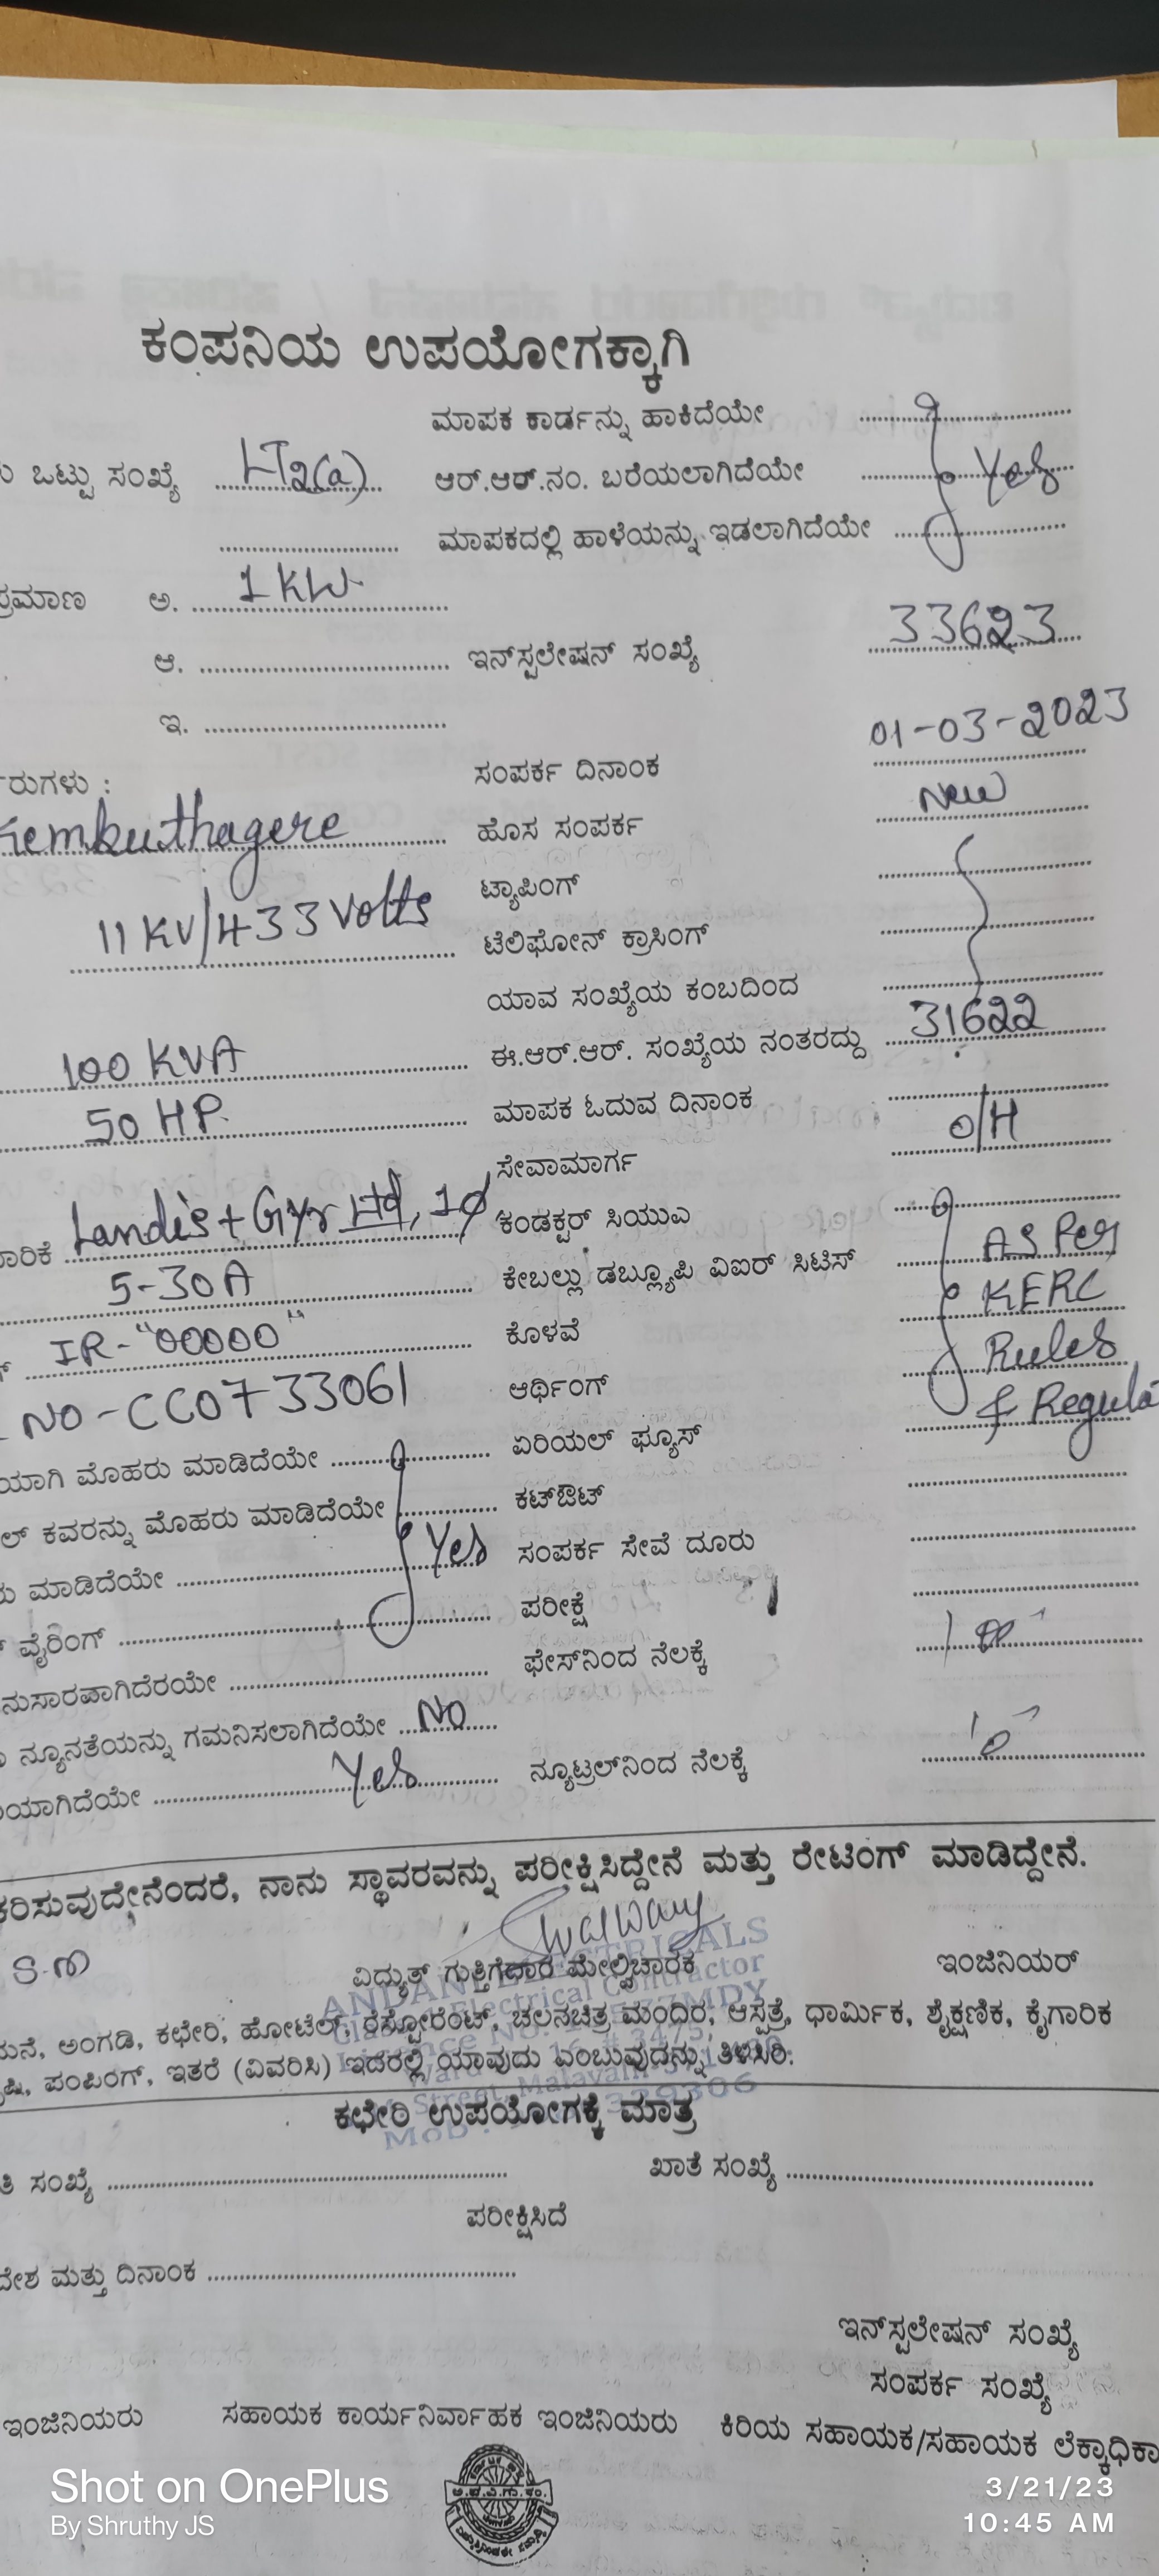 ಕಂಪನಿಯ ಉಪಯೋಗಕ್ಕಾಗಿ
ಮಾಪಕ ಕಾರ್ಡನ್ನು ಹಾಕಿದೆಯೇ
ಒಟ್ಟು ಸಂಖ್ಯೆ LT2(a) ಆರ್.ಆರ್.ನಂ. ಬರೆಯಲಾಗಿದೆಯೇ Yes
ಮಾಪಕದಲ್ಲಿ ಹಾಳೆಯನ್ನು ಇಡಲಾಗಿದೆಯೇ
ಪ್ರಮಾಣ ಅ. 1 KW
ಆ. ಇನ್‌ಸ್ಟಲೇಷನ್ ಸಂಖ್ಯೆ 33623
ಇ.
ರುಗಳು : ಸಂಪರ್ಕ ದಿನಾಂಕ 01-03-2023
Kembuthagere ಹೊಸ ಸಂಪರ್ಕ New
ಟ್ಯಾಪಿಂಗ್
11 KV/433 Volts ಟೆಲಿಫೋನ್ ಕ್ರಾಸಿಂಗ್
ಯಾವ ಸಂಖ್ಯೆಯ ಕಂಬದಿಂದ
100 KVA ಈ.ಆರ್.ಆರ್. ಸಂಖ್ಯೆಯ ನಂತರದ್ದು 31622
50 HP ಮಾಪಕ ಓದುವ ದಿನಾಂಕ
ಸೇವಾಮಾರ್ಗ O/H
ಾರಿಕೆ Landis+Gyr Ltd, 1ø ಕಂಡಕ್ಟರ್ ಸಿಯುಎ
5-30A ಕೇಬಲ್ಲು ಡಬ್ಲ್ಯೂಪಿ ವಿಐರ್ ಸಿಟಿಸ್ AS Per
IR-"00000" ಕೊಳವೆ KERC
NO-CC0733061 ಆರ್ಥಿಂಗ್ Rules
ಯಾಗಿ ಮೊಹರು ಮಾಡಿದೆಯೇ ಏರಿಯಲ್ ಫ್ಯೂಸ್ & Regula
ಲ್ ಕವರನ್ನು ಮೊಹರು ಮಾಡಿದೆಯೇ ಕಟ್‌ಔಟ್
ಮಾಡಿದೆಯೇ Yes ಸಂಪರ್ಕ ಸೇವೆ ದೂರು
ವೈರಿಂಗ್ ಪರೀಕ್ಷೆ
ನುಸಾರವಾಗಿದೆರಯೇ ಫೇಸ್‌ನಿಂದ ನೆಲಕ್ಕೆ
ನ್ಯೂನತೆಯನ್ನು ಗಮನಿಸಲಾಗಿದೆಯೇ NO
ಯಾಗಿದೆಯೇ Yes ನ್ಯೂಟ್ರಲ್‌ನಿಂದ ನೆಲಕ್ಕೆ
ಕರಿಸುವುದೇನೆಂದರೆ, ನಾನು ಸ್ಥಾವರವನ್ನು ಪರೀಕ್ಷಿಸಿದ್ದೇನೆ ಮತ್ತು ರೇಟಿಂಗ್ ಮಾಡಿದ್ದೇನೆ.
ವಿದ್ಯುತ್ ಗುತ್ತಿಗೆದಾರ ಮೇಲ್ವಿಚಾರಕ ಇಂಜಿನಿಯರ್
ಮನೆ, ಅಂಗಡಿ, ಕಛೇರಿ, ಹೋಟೆಲ್, ರೆಸ್ಟೋರೆಂಟ್, ಚಲನಚಿತ್ರ ಮಂದಿರ, ಆಸ್ಪತ್ರೆ, ಧಾರ್ಮಿಕ, ಶೈಕ್ಷಣಿಕ, ಕೈಗಾರಿಕ
ಷಿ, ಪಂಪಿಂಗ್, ಇತರೆ (ವಿವರಿಸಿ) ಇದರಲ್ಲಿ ಯಾವುದು ಎಂಬುವುದನ್ನು ತಿಳಿಸಿರಿ.
ಕಛೇರಿ ಉಪಯೋಗಕ್ಕೆ ಮಾತ್ರ
ತಿ ಸಂಖ್ಯೆ ಖಾತೆ ಸಂಖ್ಯೆ
ಪರೀಕ್ಷಿಸಿದೆ
ದೇಶ ಮತ್ತು ದಿನಾಂಕ
ಇನ್‌ಸ್ಟಲೇಷನ್ ಸಂಖ್ಯೆ
ಸಂಪರ್ಕ ಸಂಖ್ಯೆ
ಇಂಜಿನಿಯರು ಸಹಾಯಕ ಕಾರ್ಯನಿರ್ವಾಹಕ ಇಂಜಿನಿಯರು ಕಿರಿಯ ಸಹಾಯಕ/ಸಹಾಯಕ ಲೆಕ್ಕಾಧಿಕಾ
Shot on OnePlus
By Shruthy JS
3/21/23
10:45 AM